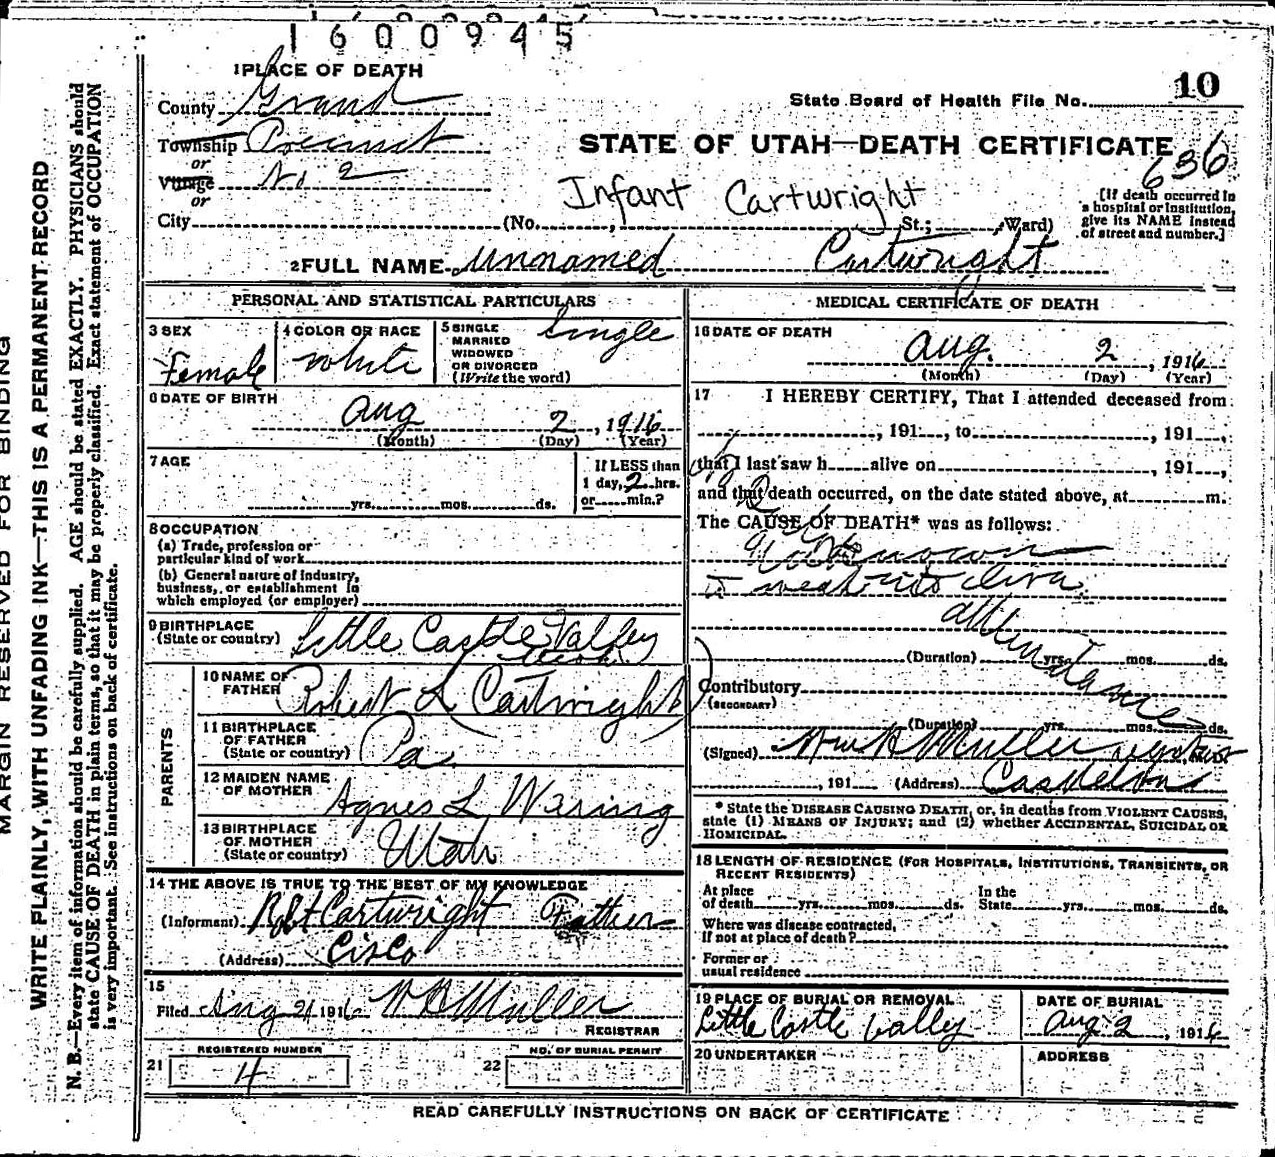 1600945
1 PLACE OF DEATH
10
County Grand
State Board of Health File No.
Township Precinct
STATE OF UTAH—DEATH CERTIFICATE
636
or
Village No 2
or
Infant Cartwright
[If death occurred in
a hospital or institution,
give its NAME instead
of street and number.]
City (No. , St.; Ward)
2 FULL NAME unnamed Cartwright
PERSONAL AND STATISTICAL PARTICULARS
3 SEX
Female
4 COLOR OR RACE
White
5 SINGLE
MARRIED
WIDOWED
OR DIVORCED
(Write the word)
Single
6 DATE OF BIRTH
Aug 2, 1916
(Month) (Day) (Year)
7 AGE
yrs. mos. ds.
If LESS than
1 day, 2 hrs.
or min.?
8 OCCUPATION
(a) Trade, profession or
particular kind of work
(b) General nature of industry,
business, or establishment in
which employed (or employer)
9 BIRTHPLACE
(State or country) Little Castle Valley
Utah
PARENTS
10 NAME OF
FATHER Robert L Cartwright
11 BIRTHPLACE
OF FATHER
(State or country) Pa.
12 MAIDEN NAME
OF MOTHER Agnes L Waring
13 BIRTHPLACE
OF MOTHER
(State or country) Utah
14 THE ABOVE IS TRUE TO THE BEST OF MY KNOWLEDGE
(Informant) Robt Cartwright Father
(Address) Cisco
15
Filed Aug 21 1916 W B Muller
REGISTRAR
REGISTERED NUMBER
21 4
NO. OF BURIAL PERMIT
22
MEDICAL CERTIFICATE OF DEATH
16 DATE OF DEATH
Aug. 2, 1916
(Month) (Day) (Year)
17 I HEREBY CERTIFY, That I attended deceased from
, 191 , to , 191 ,
that I last saw h alive on , 191 ,
and that death occurred, on the date stated above, at m.
The CAUSE OF DEATH* was as follows:
unknown
attendance
(Duration) yrs. mos. ds.
Contributory
(SECONDARY)
(Duration) yrs. mos. ds.
(Signed) Muller
, 191 (Address) Castleton
* State the DISEASE CAUSING DEATH, or, in deaths from VIOLENT CAUSES,
state (1) MEANS OF INJURY; and (2) whether ACCIDENTAL, SUICIDAL OR
HOMICIDAL.
18 LENGTH OF RESIDENCE (FOR HOSPITALS, INSTITUTIONS, TRANSIENTS, OR
RECENT RESIDENTS)
At place In the
of death yrs. mos. ds. State yrs. mos. ds.
Where was disease contracted,
if not at place of death?
Former or
usual residence
19 PLACE OF BURIAL OR REMOVAL
Little Castle Valley
DATE OF BURIAL
Aug 2, 1916
20 UNDERTAKER
ADDRESS
READ CAREFULLY INSTRUCTIONS ON BACK OF CERTIFICATE
MARGIN RESERVED FOR BINDING
WRITE PLAINLY, WITH UNFADING INK—THIS IS A PERMANENT RECORD
N. B.—Every item of information should be carefully supplied. AGE should be stated EXACTLY. PHYSICIANS should
state CAUSE OF DEATH in plain terms, so that it may be properly classified. Exact statement of OCCUPATION
is very important. See instructions on back of certificate.